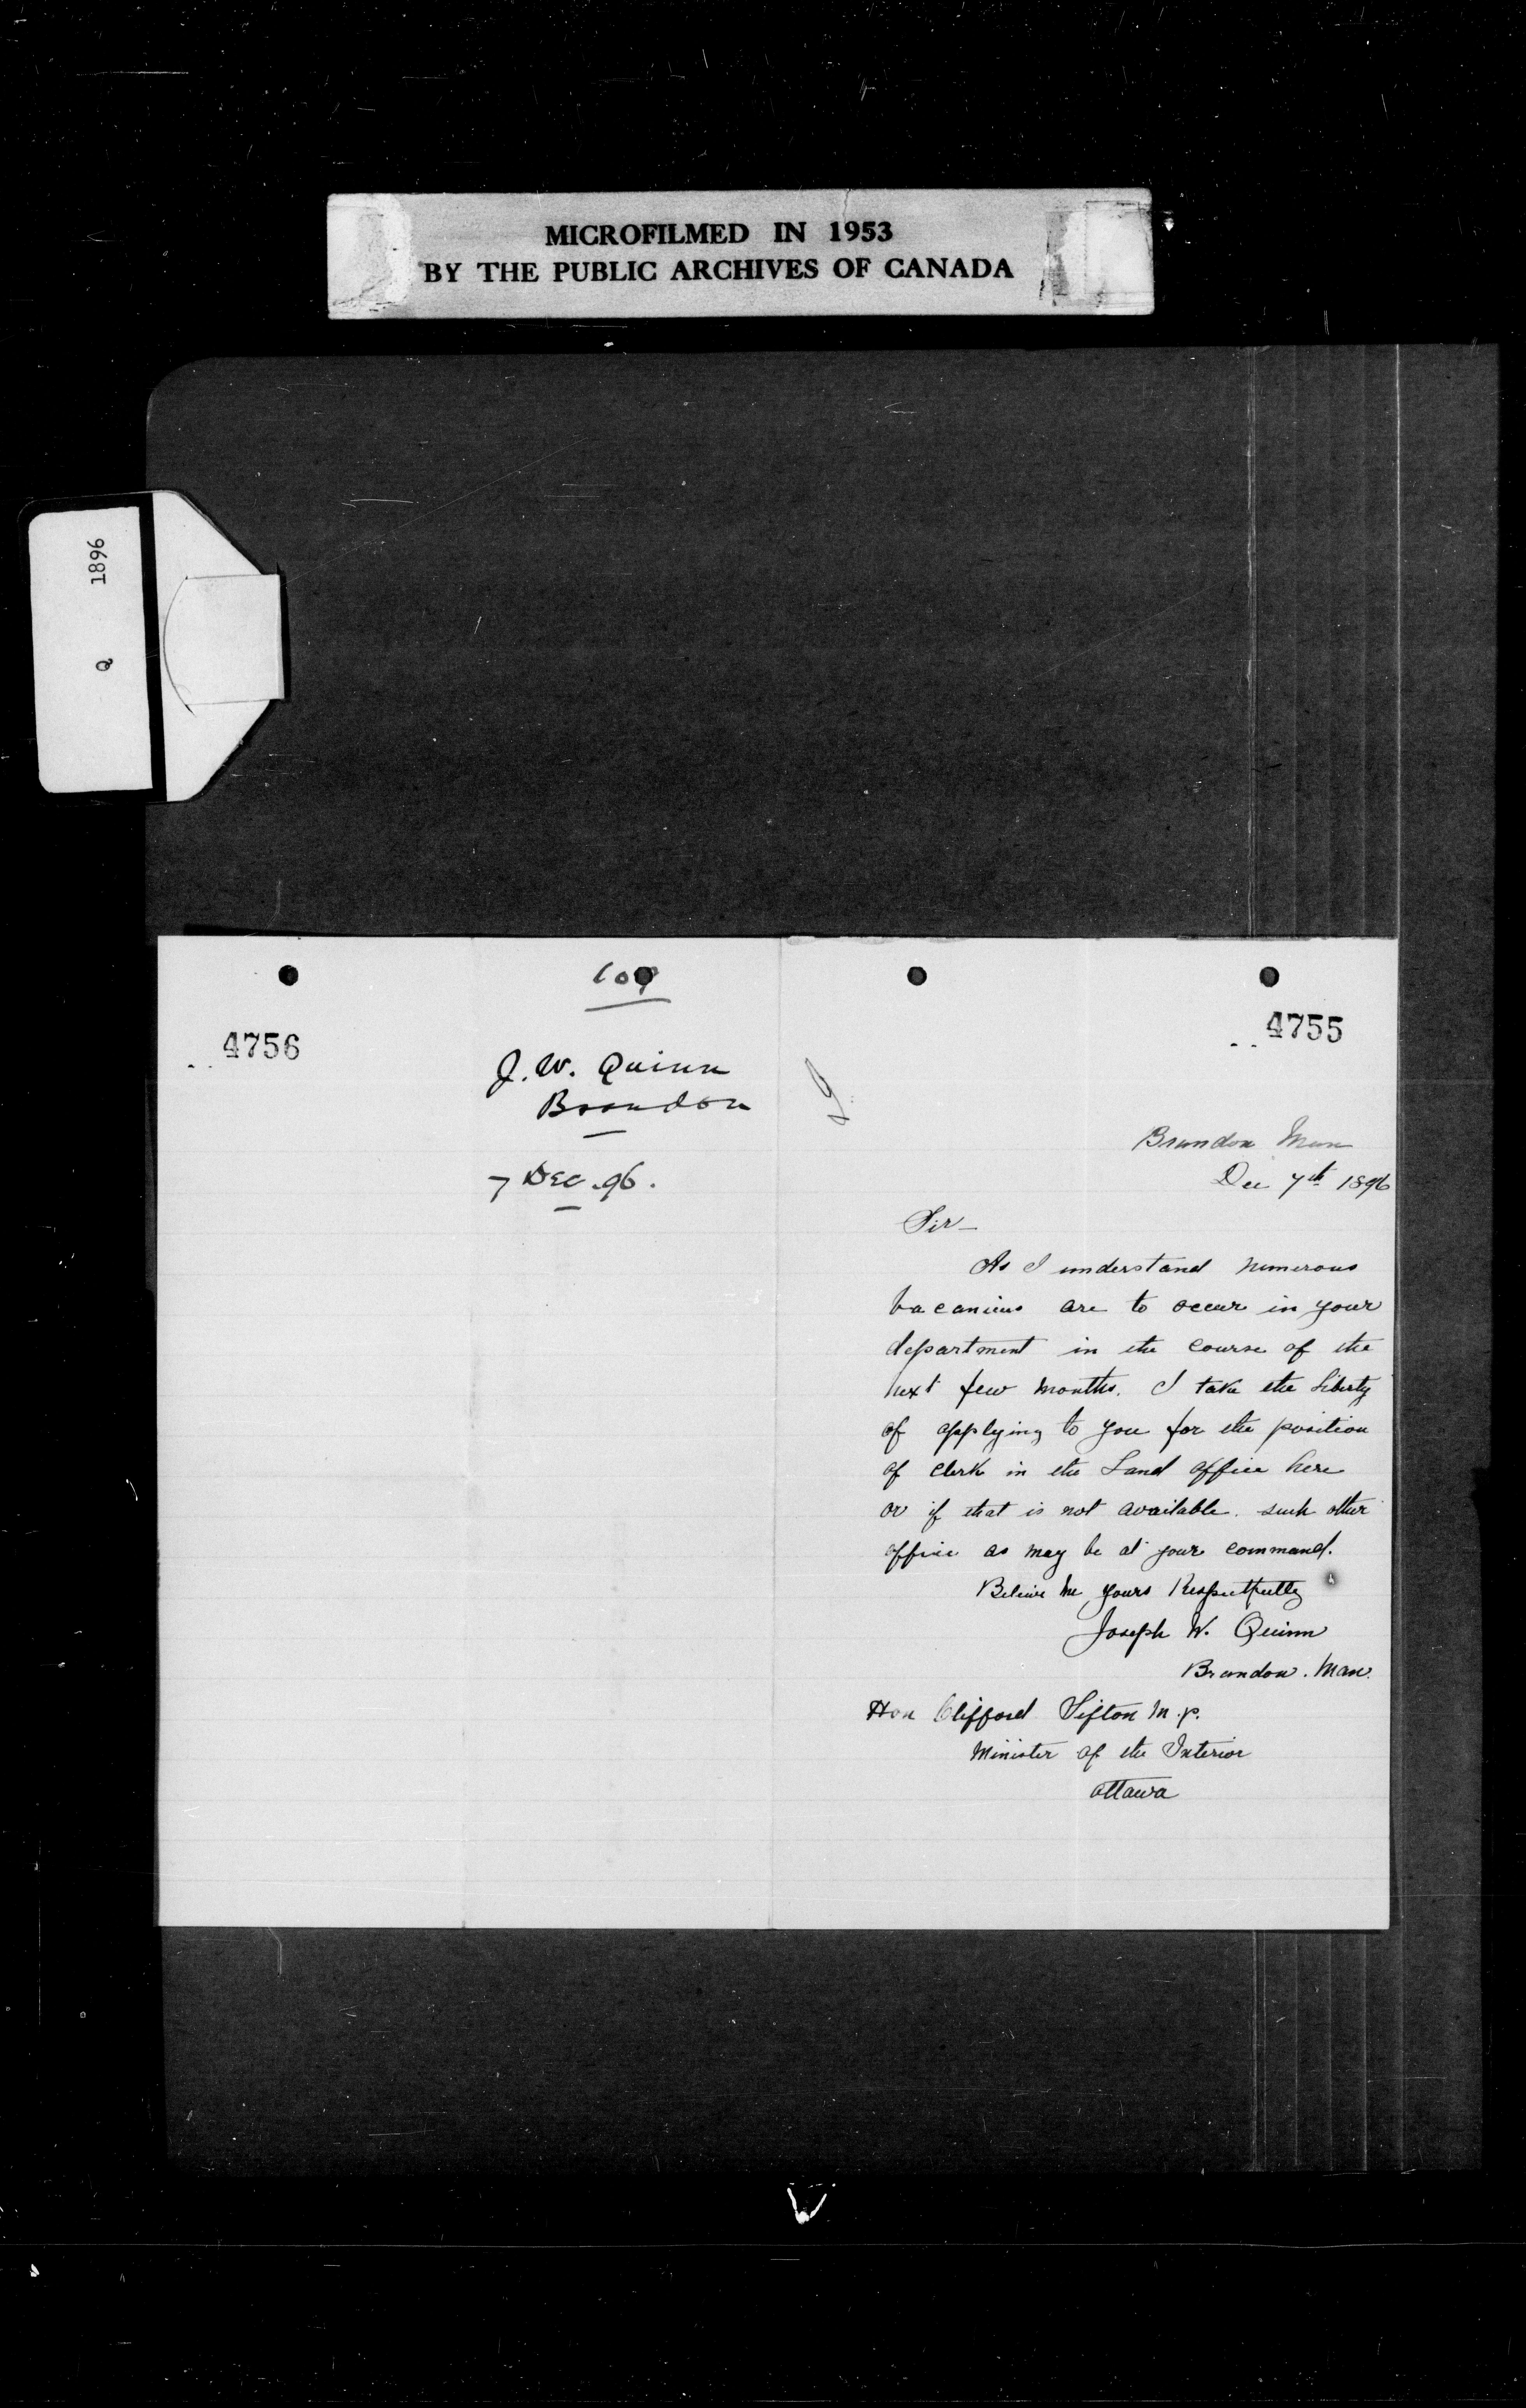 MICROFILMED IN 1953
BY THE PUBLIC ARCHIVES OF CANADA
Q 1896
4756
109
J. W. Quinn
Brandon
7 Dec. 96.
4755
Brandon Man
Dec 7th 1896
Sir—
As I understand numerous
vacancies are to occur in your
department in the course of the
next few months. I take the liberty
of applying to you for the position
of clerk in the Land office here
or if that is not available. such other
office as may be at your command.
Believe me yours Respectfully
Joseph W. Quinn
Brandon. Man.
Hon Clifford Sifton M.P.
Minister of the Interior
Ottawa